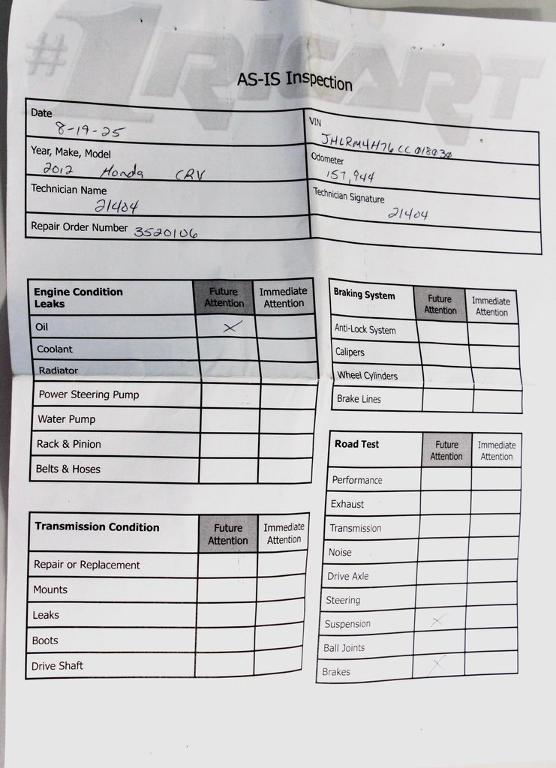 #1RICART
AS-IS Inspection
Date
8-19-25
VIN
JHLRM4H76CC018030
Year, Make, Model
2012 Honda CRV
Odometer
157,944
Technician Name
21404
Technician Signature
21404
Repair Order Number 3520106
Engine Condition Future Immediate
Leaks Attention Attention
Oil X
Coolant
Radiator
Power Steering Pump
Water Pump
Rack & Pinion
Belts & Hoses
Transmission Condition Future Immediate
Attention Attention
Repair or Replacement
Mounts
Leaks
Boots
Drive Shaft
Braking System Future Immediate
Attention Attention
Anti-Lock System
Calipers
Wheel Cylinders
Brake Lines
Road Test Future Immediate
Attention Attention
Performance
Exhaust
Transmission
Noise
Drive Axle
Steering
Suspension X
Ball Joints
Brakes X